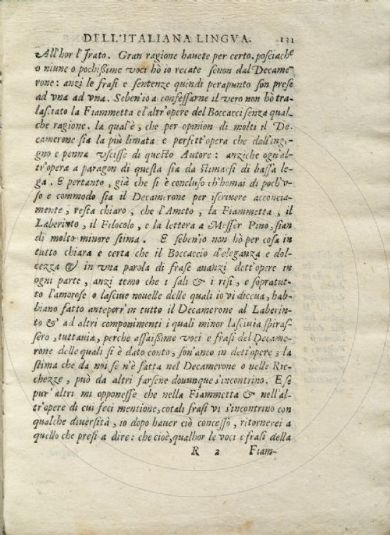 DELL'ITALIANA LINGVA. 131
All'hor l'Irato. Gran ragione hauete per certo, posciach e
o niune o pochissime voci hò io recate senon dal Decame-
rone: anzi le frasi e sentenze quindi perapunto son prese
ad vna ad vna. Seben'io a confessarne il vero non hò tra-
lasciato la Fiammetta el'altr'opere del Boccacci senza qual
che ragione. la qual'è, che per opinion di molti il De-
camerone sia la più limata e perfett'opera che dall'inge-
gno e penna vscisse di questo Autore: anziche ogn'al-
tr'opera a paragon di questa sia da stimarsi di bassa le-
ga. E pertanto, già che si è concluso ch'homai di poch'v-
so e commodo sia il Decamerone per iscriuere acconcia-
mente, resta chiaro, che l'Ameto, la Fiammetta, il
Laberinto, il Filocolo, e la lettera a Messer Pino, sian
di molto minore stima. E seben'io non hò per cosa in
tutto chiara e certa che il Boccaccio d'eleganza e dol-
cezza & in vna parola di frase auanzi dett'opere in
ogni parte, anzi temo che i sali & i risi, e sopratut-
to l'amorose o lasciue nouelle delle quali io vi diceua, hab-
biano fatto anteporr'in tutto il Decamerone al Laberin-
to & ad altri componimenti i quali minor lasciuia spiras-
sero, tuttauia, perche assaissime voci e frasi del Decame-
rone delle quali si è dato conto, son'anco in dett'opere; la
stima che da noi se n'è fatta nel Decamerone o nelle Ric-
chezze, può da altri farsene douunque s'incontrino. E se
pur'altri mi opponesse che nella Fiammetta & nell'al-
tr'opere di cui feci mentione, cotali frasi vi s'incontrino con
qualche diuersità, io dopo hauer ciò concesso, ritornerei a
quello che presi a dire: che cioè, qualhor le voci e frasi della
R 2 Fiam-